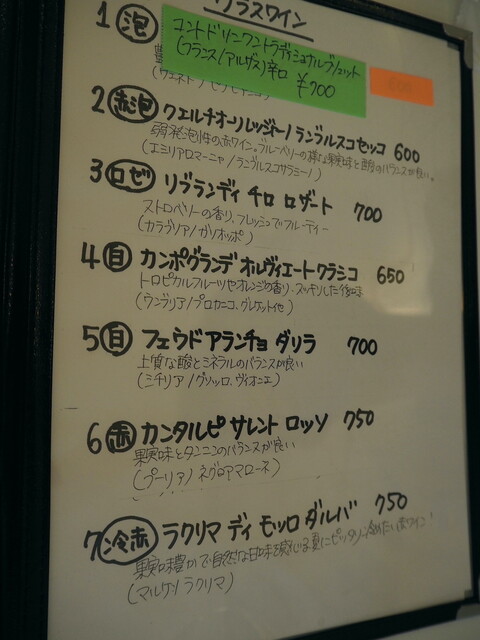 グラスワイン
1 泡
コントドリニワントラディショナルブリュット
(フランス/アルザス)辛口 ¥700
2 赤泡 クエルチオーリレッジャーノランブルスコセッコ 600
弱発泡性の赤ワイン。ブルーベリーの様な果実味と酸のバランスが良い。
(エミリアロマーニャ/ランブルスコサラミーノ)
3 ロゼ リブランディ チロ ロザート 700
ストロベリーの香り、フレッシュでフルーティー
(カラブリア/ガリオッポ)
4 白 カンポグランデ オルヴィエートクラシコ 650
トロピカルフルーツやオレンジの香り、スッキリした後味
(ウンブリア/プロカニコ、グレケット他)
5 白 フェウドアランチョ ダリラ 700
上質な酸とミネラルのバランスが良い
(シチリア/グリッロ、ヴィオニエ)
6 赤 カンタルピ サレント ロッソ 750
果実味とタンニンのバランスが良い
(プーリア/ネグロアマローネ)
7 冷赤 ラクリマ ディ モッロ ダルバ 750
果実味豊かで自然な甘味を感じる夏にピッタリ冷めたい赤ワイン!
(マルケ/ラクリマ)